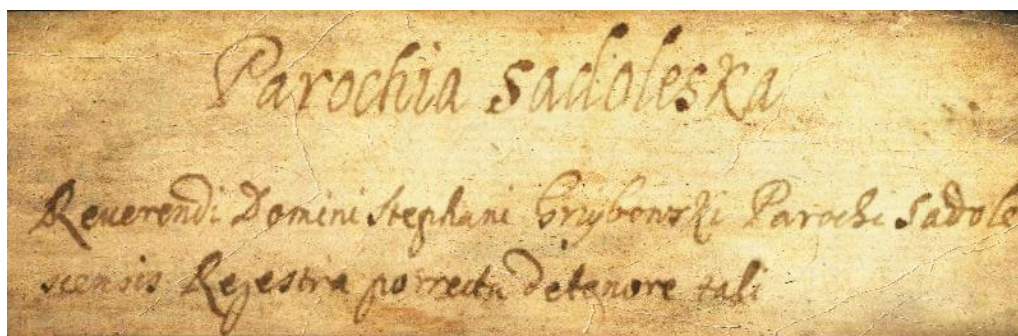 Parochia Sadoleska
Reverendi Domini Stephani Grzybowski Parochi Sadole
scensis Regestra porrecta de tenore tali